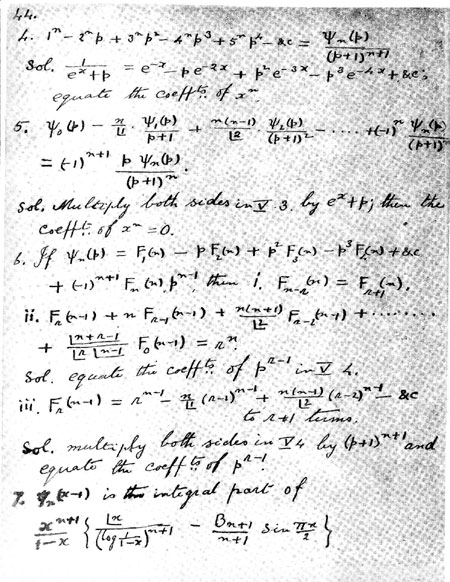 44.
4. 1ⁿ − 2ⁿp + 3ⁿp² − 4ⁿp³ + 5ⁿp⁴ − &c = ψₙ(p)/(p+1)ⁿ⁺¹
Sol. 1/(eˣ+p) = e⁻ˣ − pe⁻²ˣ + p²e⁻³ˣ − p³e⁻⁴ˣ + &c;
equate the coeffts. of xⁿ.
5. ψ₀(p) − n/⌊1 · ψ₁(p)/(p+1) + n(n−1)/⌊2 · ψ₂(p)/(p+1)² − ····· +(−1)ⁿ ψₙ(p)/(p+1)ⁿ
= (−1)ⁿ⁺¹ p ψₙ(p)/(p+1)ⁿ.
Sol. Multiply both sides in V 3. by eˣ+p; then the
coefft. of xⁿ = 0.
6. If ψₙ(p) = F₁(n) − pF₂(n) + p²F₃(n) − p³F₄(n) + &c
+ (−1)ⁿ⁺¹ Fₙ(n) pⁿ⁻¹, then i. Fₙ₋ᵣ(n) = Fᵣ₊₁(n).
ii. Fᵣ(n−1) + n Fᵣ₋₁(n−1) + n(n+1)/⌊2 Fᵣ₋₂(n−1) + ········
+ ⌊n+r−1/⌊r ⌊n−1 F₀(n−1) = rⁿ.
Sol. equate the coeffts. of pʳ⁻¹ in V 4.
iii. Fᵣ(n−1) = rⁿ⁻¹ − n/⌊1 (r−1)ⁿ⁻¹ + n(n−1)/⌊2 (r−2)ⁿ⁻¹ − &c
to r+1 terms.
Sol. multiply both sides in V 4 by (p+1)ⁿ⁺¹ and
equate the coeffts of pʳ⁻¹.
7. ψₙ(x−1) is the integral part of
xⁿ⁺¹/(1−x) { ⌊n/(log 1/(1−x))ⁿ⁺¹ − Bₙ₊₁/(n+1) sin πn/2 }